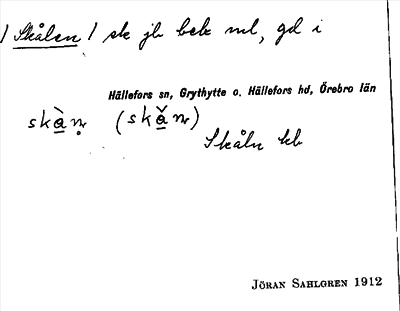 / Skålen / sk jb beb ml, gd i
Hällefors sn, Grythytte o. Hällefors hd, Örebro län
Skåln kb
JÖRAN SAHLGREN 1912